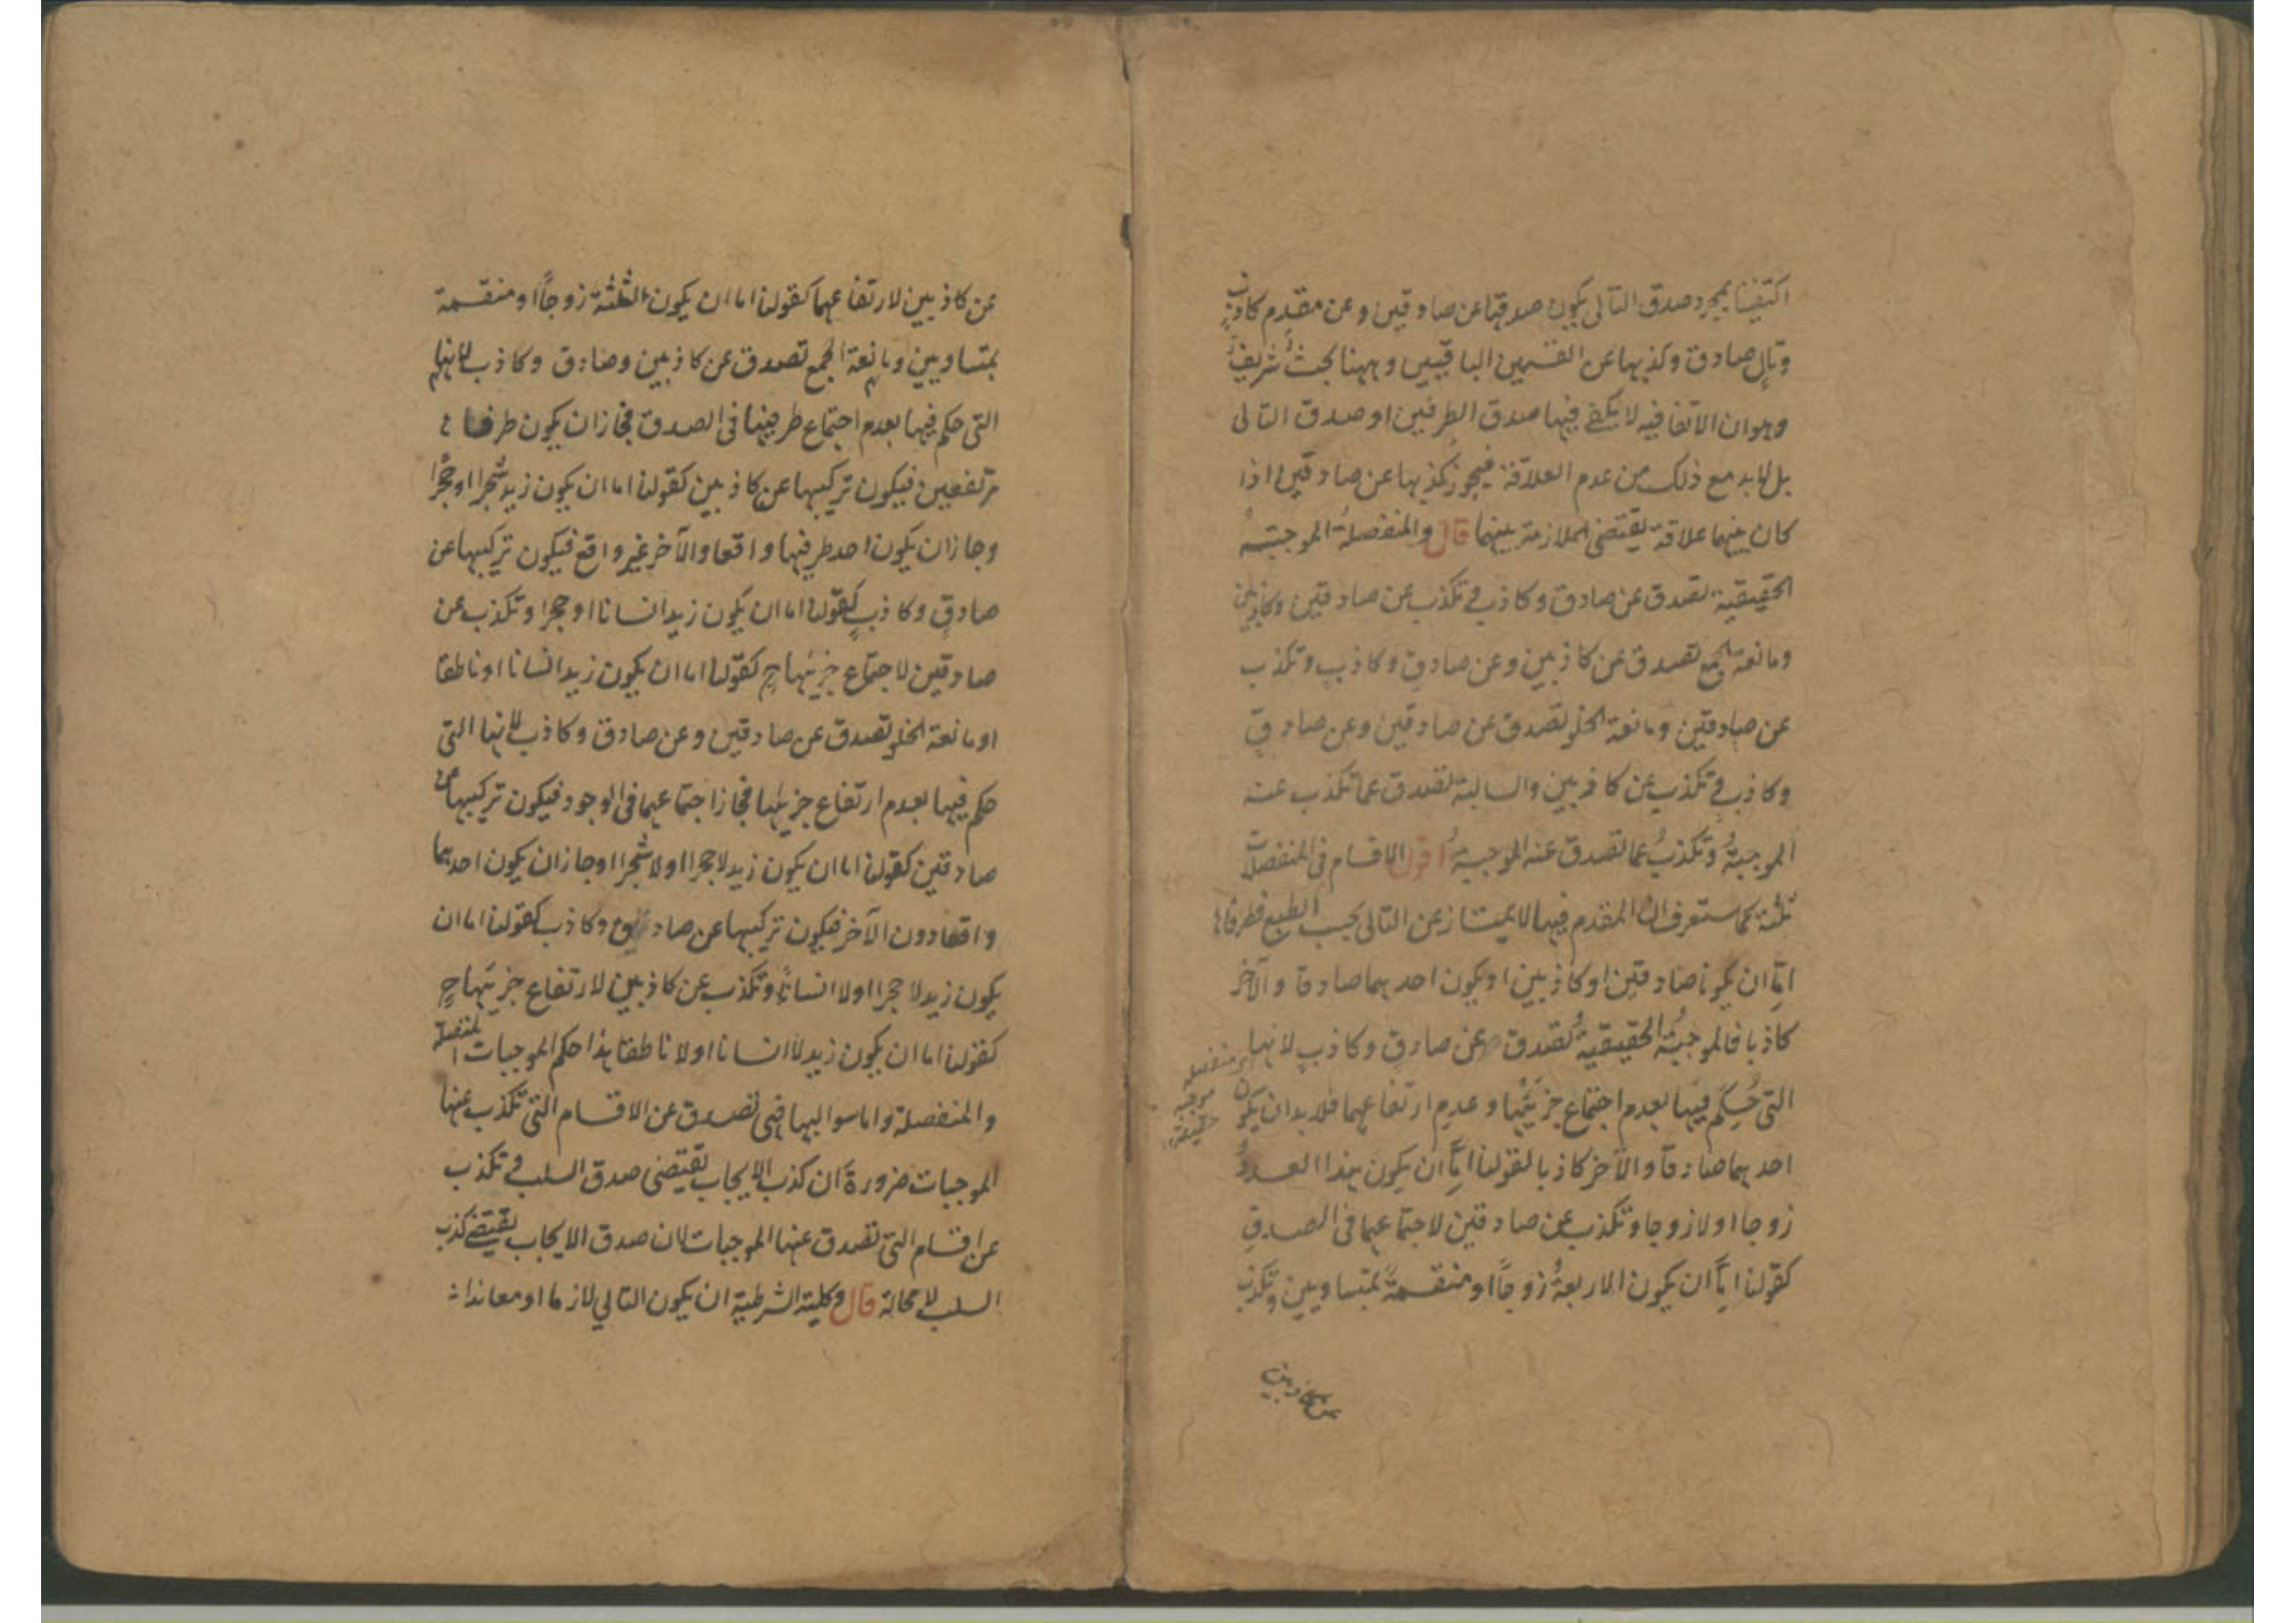 اكتفينا بمجرد صدق التالى يكون صدقها عن صادقين وعن مقدم كاذب
وتالٍ صادق وكذبها عن القسمين الباقيين وههنا بحثٌ شريفٌ
وهو ان الاتفاقيه لا يكفى فيها صدق الطرفين او صدق التالى
بل لابد مع ذلك من عدم العلاقة فيجوز كذبها عن صادقين اذا
كان بينهما علاقة يقتضى الملازمة بينهما قال والمنفصلة الموجبة
الحقيقية تصدق عن صادق وكاذب وتكذب عن صادقين وكاذبين
ومانعة الجمع تصدق عن كاذبين وعن صادق وكاذب وتكذب
عن صادقين ومانعة الخلو تصدق عن صادقين وعن صادقٍ
وكاذب وتكذب عن كاذبين والسالبة تصدق عما تكذب عنه
الموجبةُ وتكذبُ عما تصدق عنه الموجبةُ اقول الاقسام فى المنفصلات
ثلثة كما ستعرف ان المقدم فيها لا يمتاز عن التالى بحسب الطبع فطرفاها
امّا ان يكونا صادقين او كاذبين او يكون احدهما صادقا والآخر
كاذبا فالموجبةُ الحقيقيةُ تصدق عن صادقٍ وكاذبٍ لانها
منفصلة
موجبة
حقيقية
التى حُكِمَ فيها بعدم اجتماع جزئيها وعدم ارتفاعهما فلابد ان يكون
احدهما صادقًا والآخر كاذبا كقولنا امّا ان يكون هذا العددُ
زوجا اولا زوجا وتكذب عن صادقين لاجتماعهما فى الصدق
كقولنا امّا ان يكون الاربعةُ زوجًا او منقسمةً بمتساويين وتكذب
عن كاذبين
عن كاذبين لارتفاعهما كقولنا اما ان يكون الثلثة زوجًا او منقسمة
بمتساويين ومانعة الجمع تصدق عن كاذبين وصادق وكاذب لانها
التى حكم فيها بعدم اجتماع طرفيها فى الصدق فجاز ان يكون طرفاها
مرتفعين فيكون تركيبها عن كاذبين كقولنا اما ان يكون زيد شجرا او حجرًا
وجاز ان يكون احد طرفيها واقعا والآخر غير واقع فيكون تركيبها عن
صادقٍ وكاذبٍ كقولنا اما ان يكون زيد انسانا او حجرا وتكذب عن
صادقين لاجتماع جزئيها ح كقولنا اما ان يكون زيد انسانا او ناطقا
او مانعة الخلو تصدق عن صادقين وعن صادق وكاذب لانها التى
حكم فيها بعدم ارتفاع جزئيها فجاز اجتماعهما فى الوجود فيكون تركيبها عن
صادقين كقولنا اما ان يكون زيد لاحجرا او لاشجرا او جاز ان يكون احدهما
واقعا دون الآخر فيكون تركيبها عن صادق وكاذب كقولنا اما ان
يكون زيد لاحجرا اولا انسانًا وتكذب عن كاذبين لارتفاع جزئيها ح
كقولنا اما ان يكون زيد لا انسانا اولا ناطقا هذا حكم الموجبات المتصلة
والمنفصلة واما سوالبها فهى تصدق عن الاقسام التى تكذب عنها
الموجبات ضرورة ان كذب الايجاب يقتضى صدق السلب وتكذب
عن اقسام التى تصدق عنها الموجبات لان صدق الايجاب يقتضى كذب
السلب لا محالة قال وكلية الشرطية ان يكون التالي لازما او معاندا